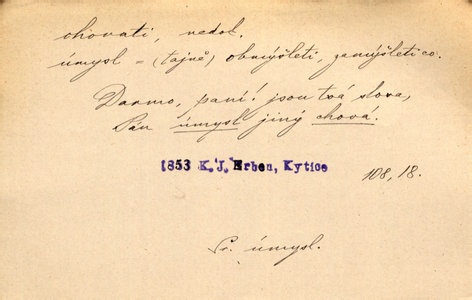 chovati, nedok.
úmysl = (tajně) obmýšleti, zamýšleti co.
Darmo, paní! jsou tvá slova,
Pán úmysl jiný chová.
1853 K. J. Erben, Kytice 108, 18.
Sr. úmysl.